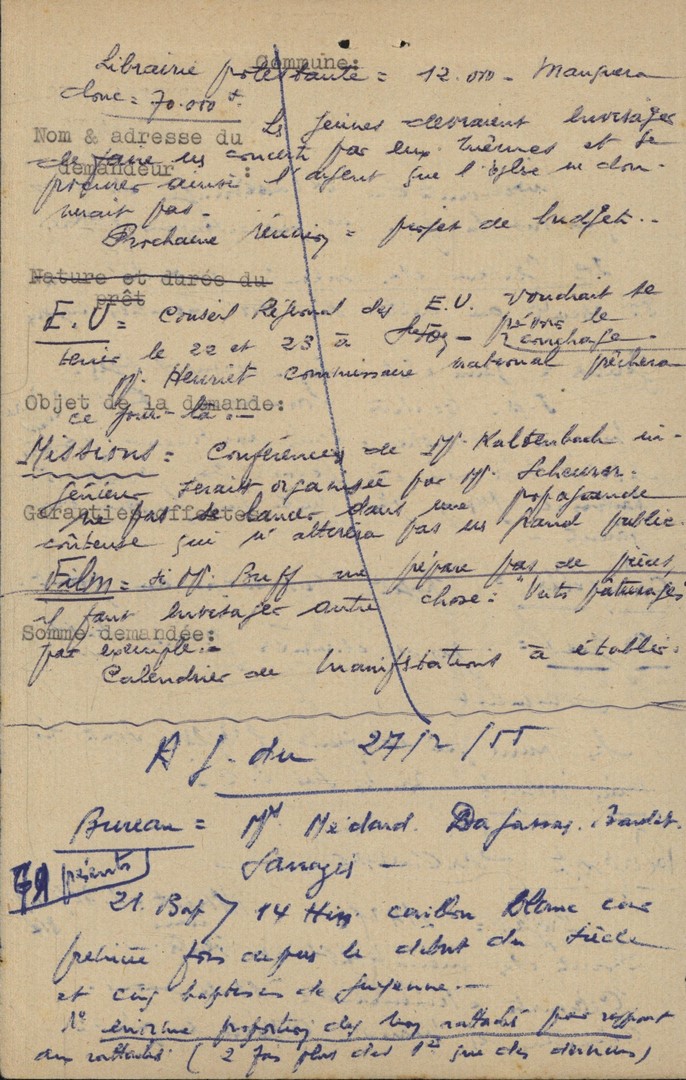 Commune:
Librairie protestante = 12.000 - Manquera
donc = 70.000 f.
Nom & adresse du
demandeur :
Les jeunes devraient envisager
de faire un concert par eux mêmes et se
procurer ainsi l'argent que l'Eglise ne don-
nerait pas -
Prochaine réunion = projet de budget. -
Nature et durée du
prêt
E.U = Conseil Régional des E.U. voudrait se
tenir le 22 et 23 à - prévoir le
M. Henriet commissaire national prêchera
Objet de la demande:
ce jour là. -
Missions = Conférence de M. Kaltenbach in-
génieur serait organisée par M. Scheurer.
Garanties offertes
ne pas se lancer dans une propagande
coûteuse qui n'atteindra pas un grand public.
Film = Si M. Buff ne prépare pas de pièces
il faut envisager autre chose = "Verts pâturages"
Somme demandée:
par exemple. -
Calendrier de manifestations à établir.
A G. du 27/2/55
Bureau = MM Médard. Baudet.
79 présents
21. Bap 14 Hiss cavillon blanc
première fois depuis le début du siècle
et cinq baptisés de Guyenne. -
1° énorme proportion des non rattachés par rapport
aux rattachés ( 2 fois plus des 1ers que des derniers )